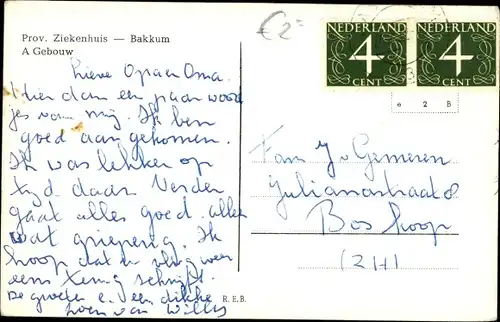 Prov. Ziekenhuis — Bakkum
A Gebouw
€ 2=
NEDERLAND
4
CENT
NEDERLAND
4
CENT
e 2 B
Lieve Opa en Oma.
Hier dan een paar woord
jes van mij. Ik ben
goed aangekomen.
Ik was lekker op
tijd daar. Verder
gaat alles goed. alles
wat grieperig. Ik
hoop dat u vlug weer
eens schrijft.
De groeten en een dikke
zoen van Willy
R.E.B.
Fam J v Gemeren
Julianastraat 8
Boskoop
(ZH)